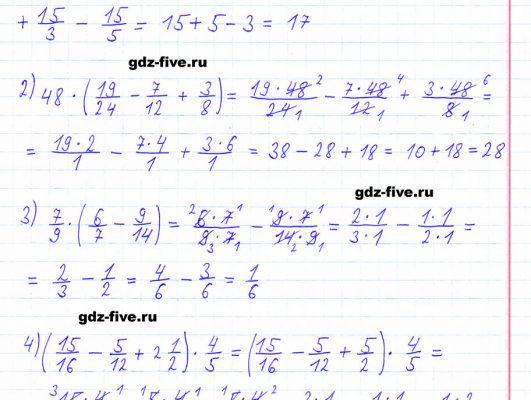 + 15/3 − 15/5 = 15 + 5 − 3 = 17
gdz-five.ru
2) 48 · (19/24 − 7/12 + 3/8) = 19·48²/24₁ − 7·48⁴/12₁ + 3·48⁶/8₁ =
= 19·2/1 − 7·4/1 + 3·6/1 = 38 − 28 + 18 = 10 + 18 = 28
gdz-five.ru
3) 7/9 · (6/7 − 9/14) = ²6·7¹/9₃·7₁ − ¹9·7¹/14₂·9₁ = 2·1/3·1 − 1·1/2·1 =
= 2/3 − 1/2 = 4/6 − 3/6 = 1/6
gdz-five.ru
4) (15/16 − 5/12 + 2 1/2) · 4/5 = (15/16 − 5/12 + 5/2) · 4/5 =